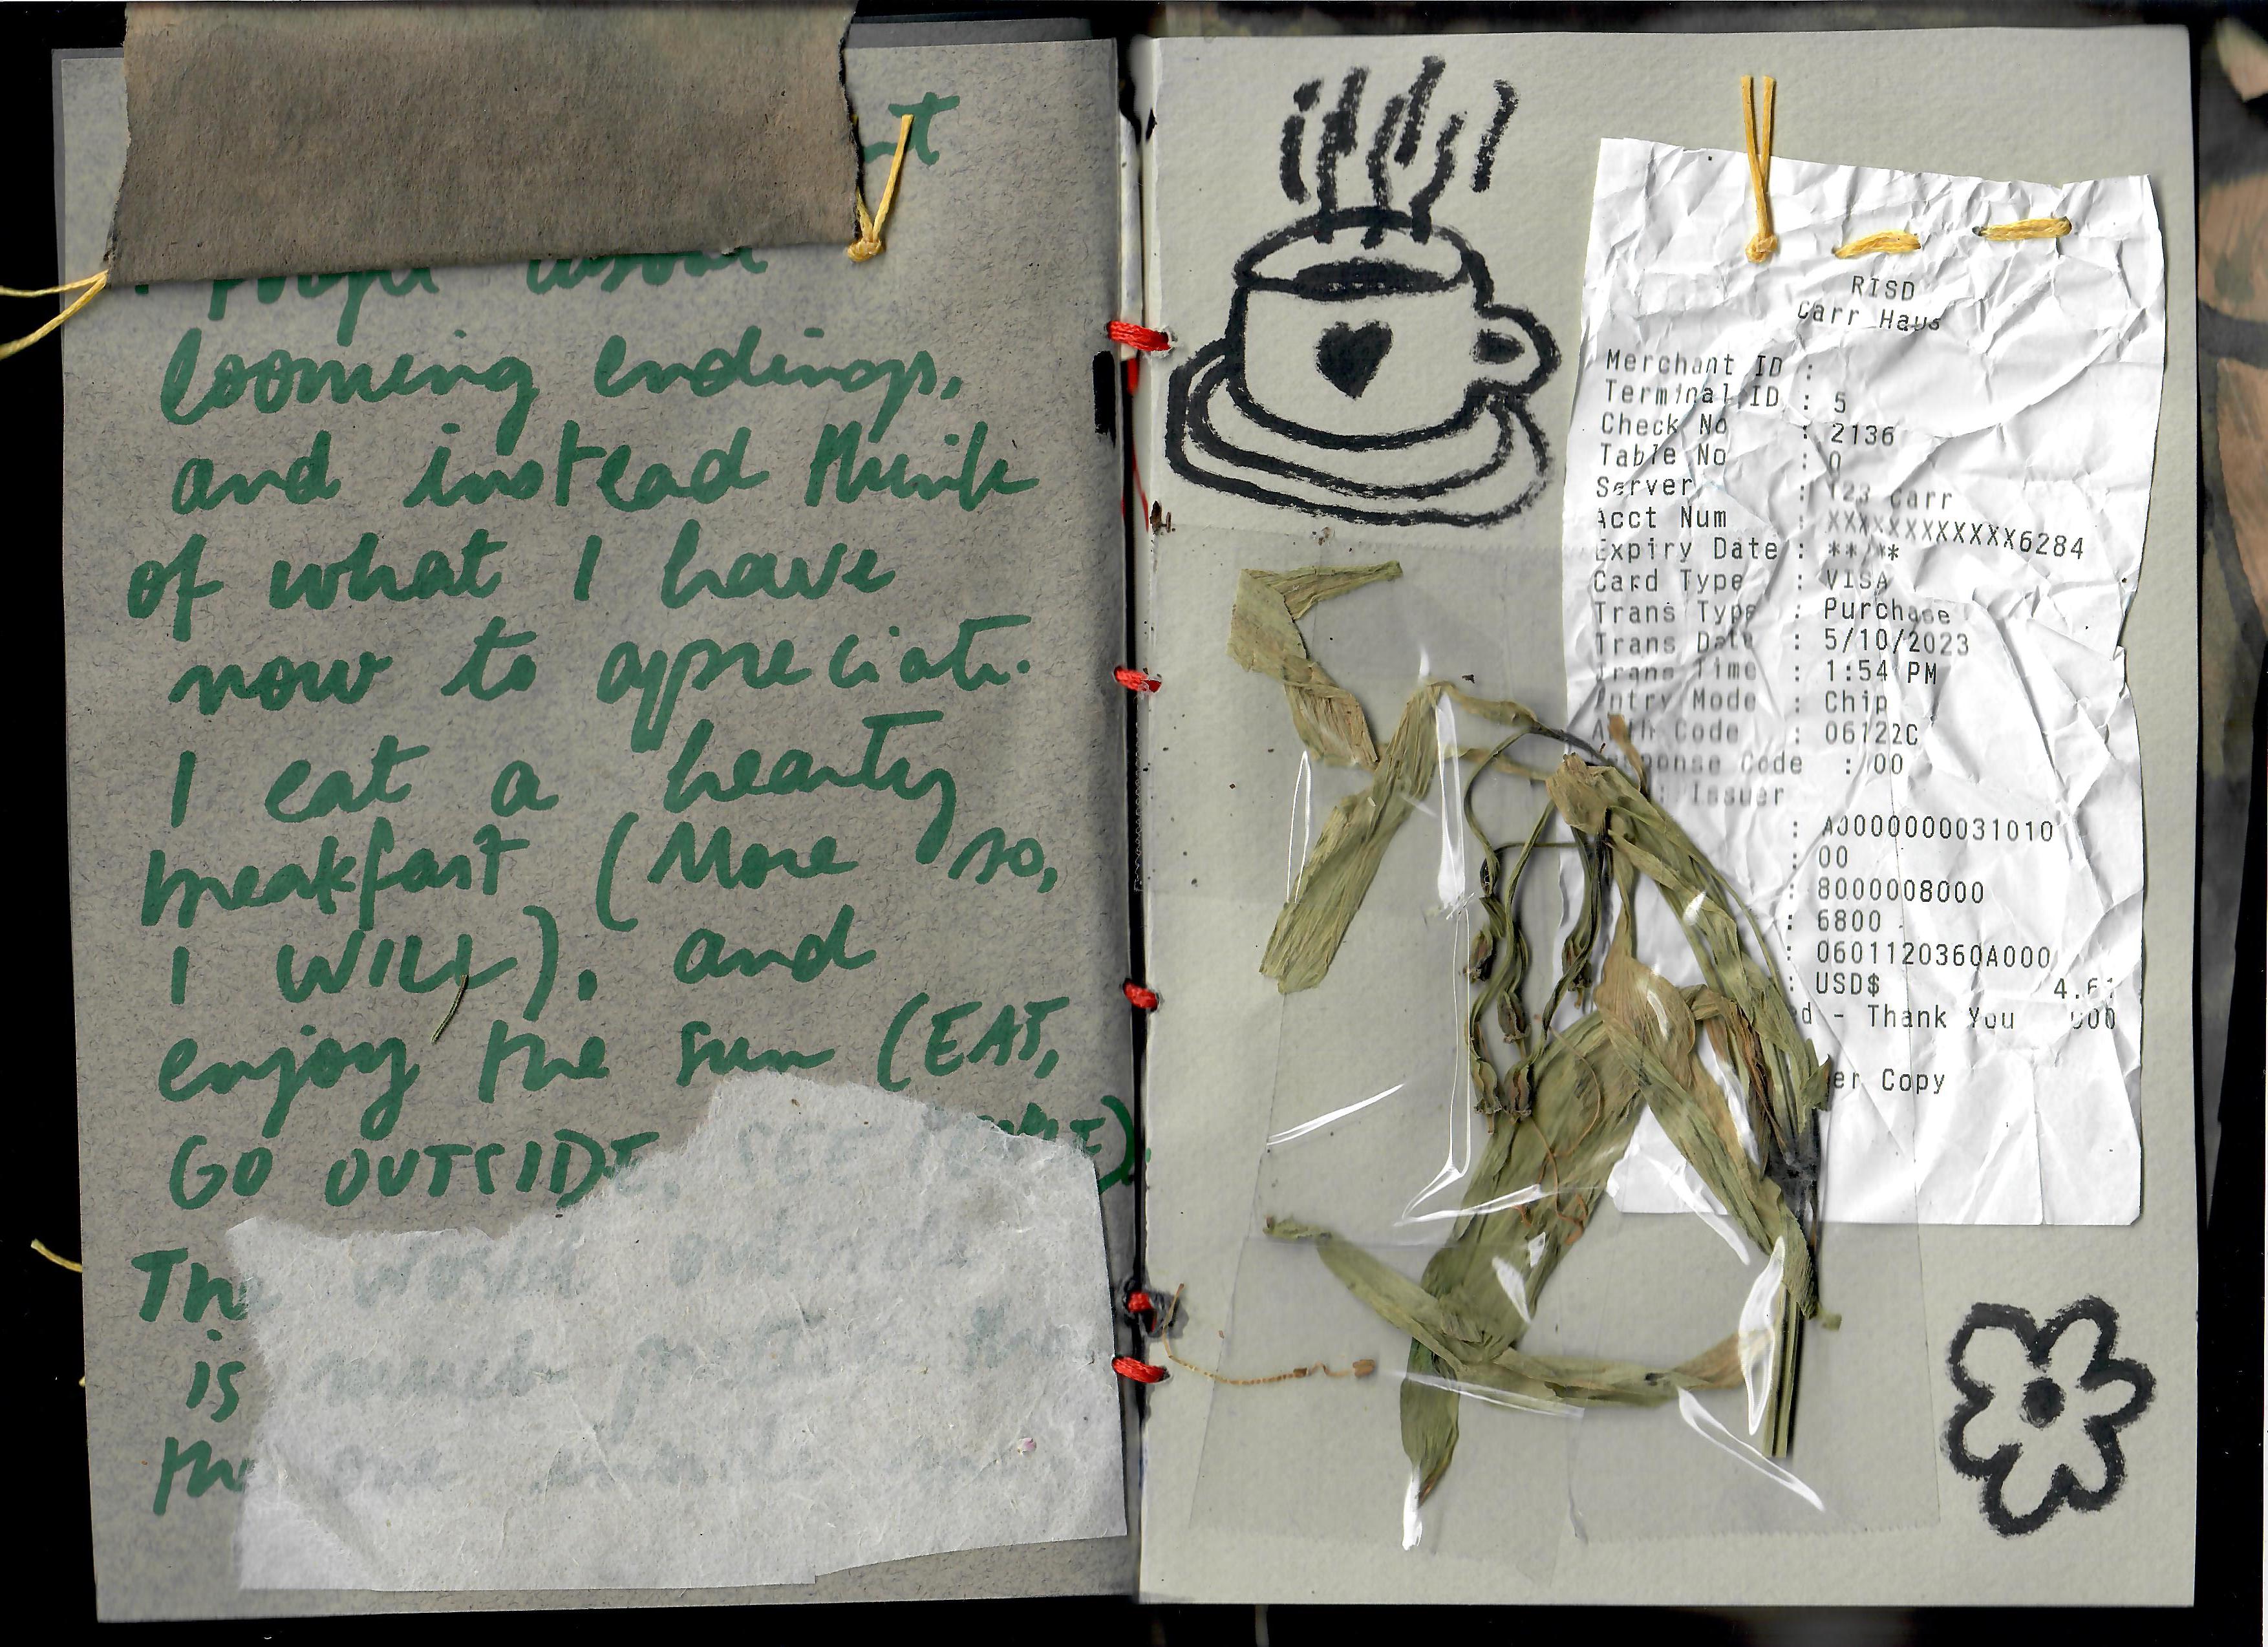 looming endings,
and instead think
of what I have
now to apreciate.
I eat a hearty
breakfast (More so,
I WILL), and
enjoy the sun (EAT,
GO OUTSIDE, SEE
The world
is much
the one
RISD
Carr Haus
Merchant ID :
Terminal ID : 5
Check No : 2136
Table No : 0
Server : 123 carr
Acct Num : XXXXXXXXXXXX6284
Expiry Date : **/**
Card Type : VISA
Trans Type : Purchase
Trans Date : 5/10/2023
Trans Time : 1:54 PM
Entry Mode : Chip
Auth Code : 06122C
Code : 00
Issuer
: A0000000031010
: 00
: 8000008000
: 6800
: 0601120360A000
: USD$
- Thank You
Copy